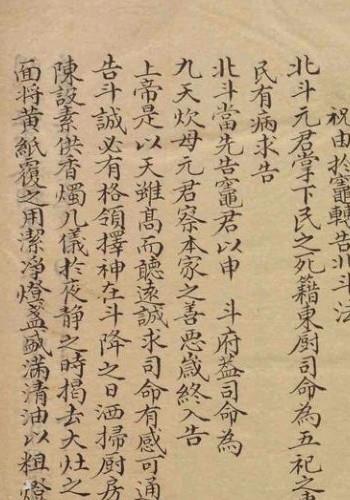 祝由於竈轉告北斗法
北斗元君掌下民之死籍東厨司命為五祀之
民有病求告
北斗當先告竈君以申 斗府蓋司命為
九天炊母元君察本家之善惡歲終入告
上帝是以天雖高而聽遠誠求司命有感可通
告斗誠必有格領擇神在斗降之日洒掃厨房
陳設素供香燭几儀於夜静之時揭去大灶之
面將黄紙覆之用潔净燈盞盛滿清油以粗燈